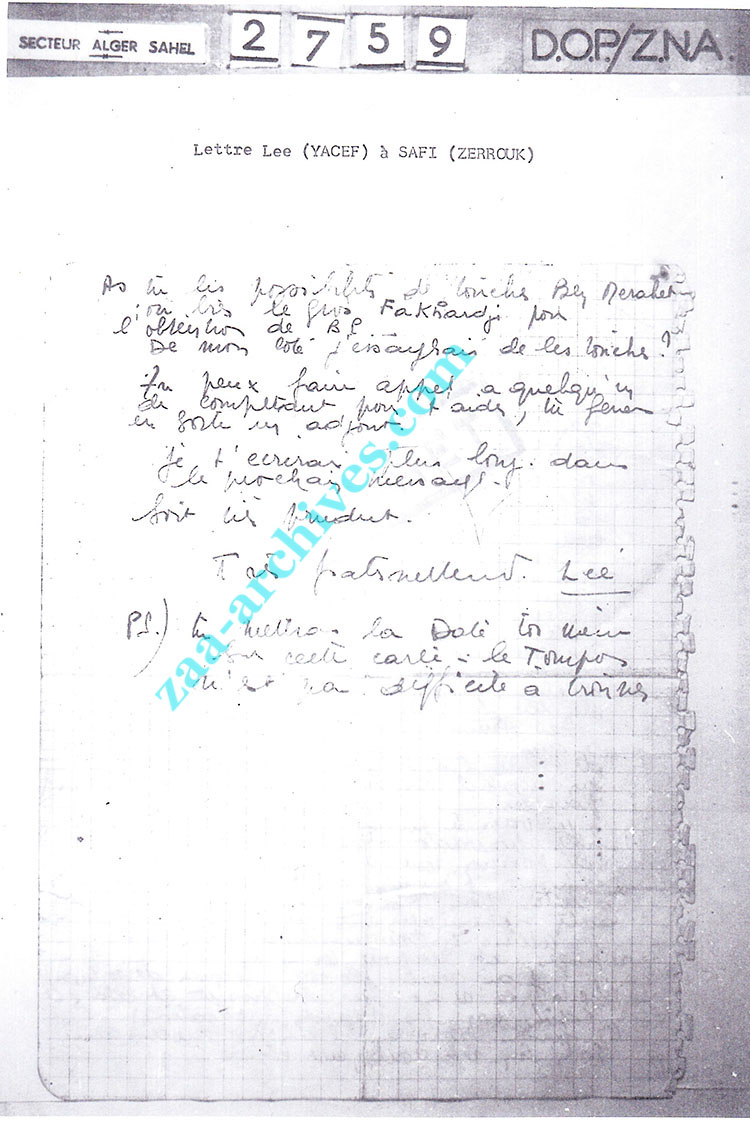 SECTEUR ALGER SAHEL
2 7 5 9
D.O.P./Z.N.A.
Lettre Lee (YACEF) à SAFI (ZERROUK)
As tu les possibilités de toucher Ben Merabet
ou bien le gros Fakhardji pour
l'obtention de
De mon coté j'essayrais de les toucher ?
Tu peux faire appel a quelqu'un
de compétant pour t'aider, tu
en sorte un adjoint.
je t'écrirai plus long. dans
le prochain message.
Soit très prudent.
Très fraternellement. Leé
P.S.) tu mettra la Date toi même
sur cette carte = le Tampon
n'est pas difficile à trouver
zaa-archives.com